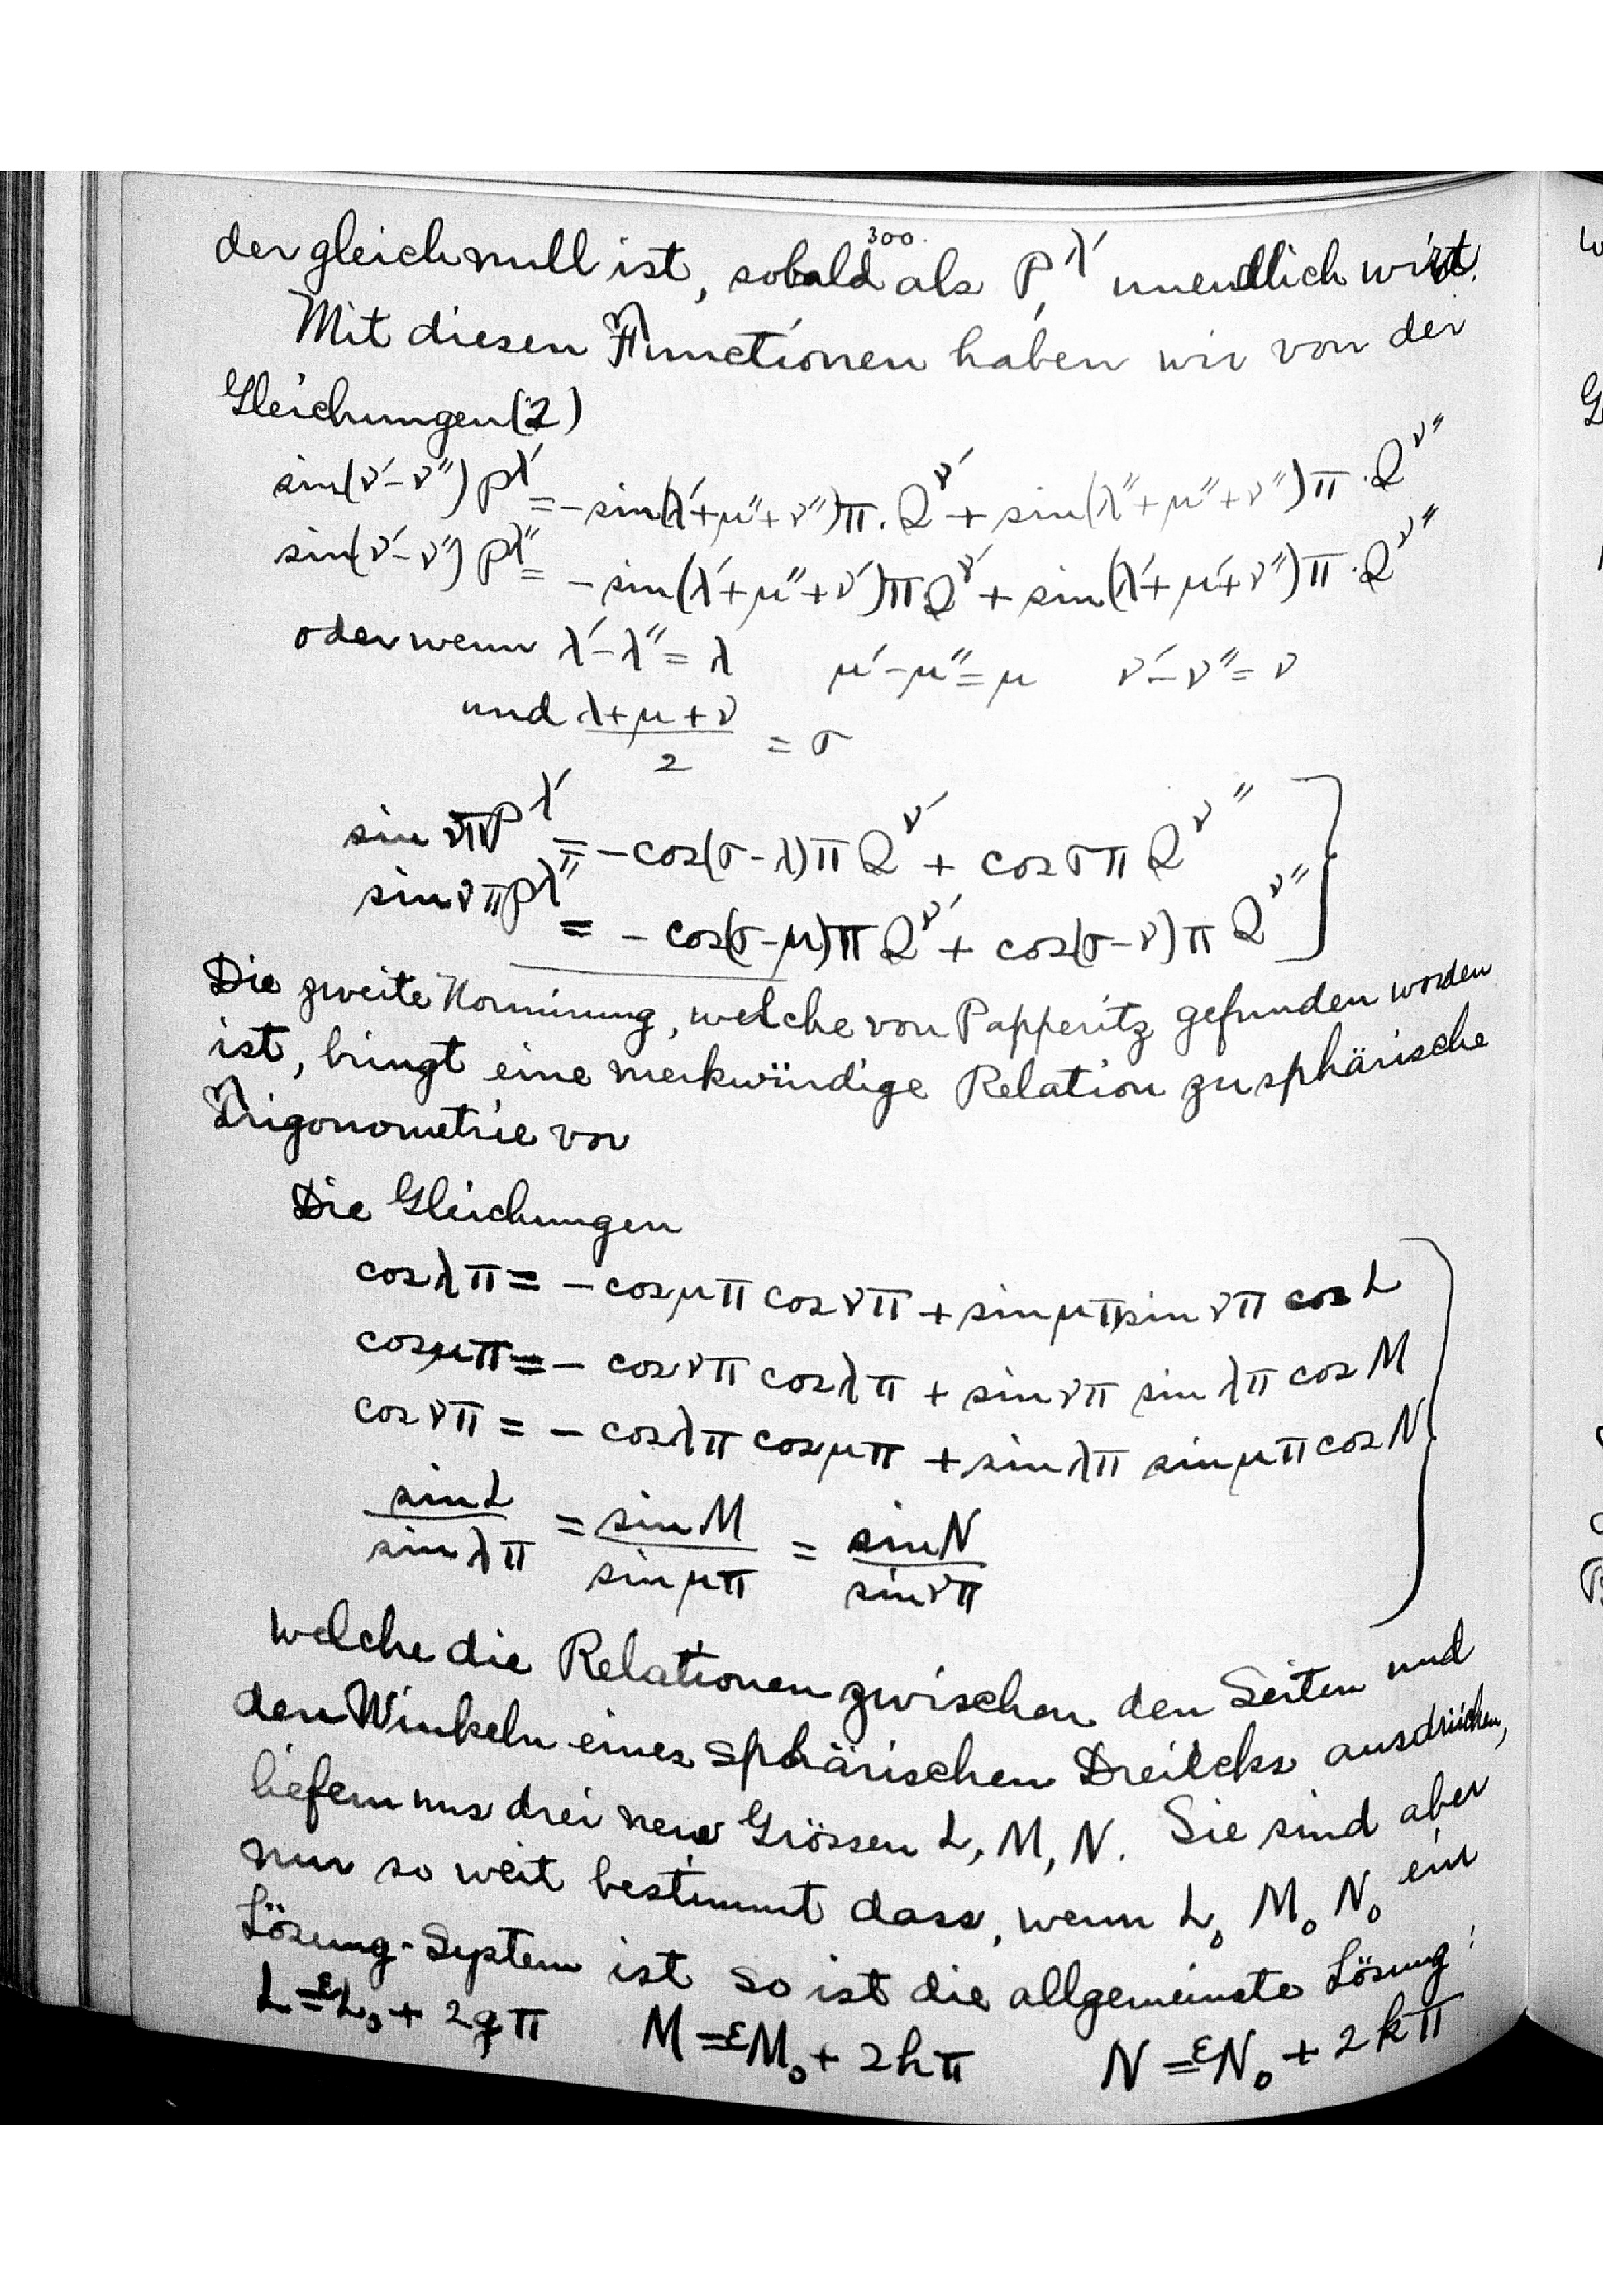 300.
der gleich null ist, sobald als P,^λ′ unendlich wird.
Mit diesen Functionen haben wir von der
Gleichungen (2)
sin(ν′-ν″) P^λ′ = -sin(λ′+μ″+ν″)π. Q^ν′ + sin(λ″+μ″+ν″)π . Q^ν″
sin(ν′-ν″) P^λ″ = -sin(λ′+μ″+ν′)π Q^ν′ + sin(λ′+μ′+ν″)π . Q^ν″
oder wenn λ′-λ″ = λ μ′-μ″ = μ ν′-ν″ = ν
und (λ+μ+ν)/2 = σ
sin νπ P^λ′ = -cos(σ-λ)π Q^ν′ + cos σπ Q^ν″
sin νπ P^λ″ = - cos(σ-μ)π Q^ν′ + cos(σ-ν)π Q^ν″
Die zweite Normirung, welche von Papperitz gefunden worden
ist, bringt eine merkwürdige Relation zu sphärische
Trigonometrie vor
Die Gleichungen
cos λπ = - cos μπ cos νπ + sin μπ sin νπ cos L
cos μπ = - cos νπ cos λπ + sin νπ sin λπ cos M
cos νπ = - cos λπ cos μπ + sin λπ sin μπ cos N
sin L/sin λπ = sin M/sin μπ = sin N/sin νπ
welche die Relationen zwischen den Seiten und
den Winkeln eines sphärischen Dreiecks ausdrücken,
liefern uns drei neue Grössen L, M, N. Sie sind aber
nur so weit bestimmt dass, wenn L₀ M₀ N₀ ein
Lösung-System ist so ist die allgemeinste Lösung:
L = εL₀ + 2gπ M = εM₀ + 2hπ N = εN₀ + 2kπ